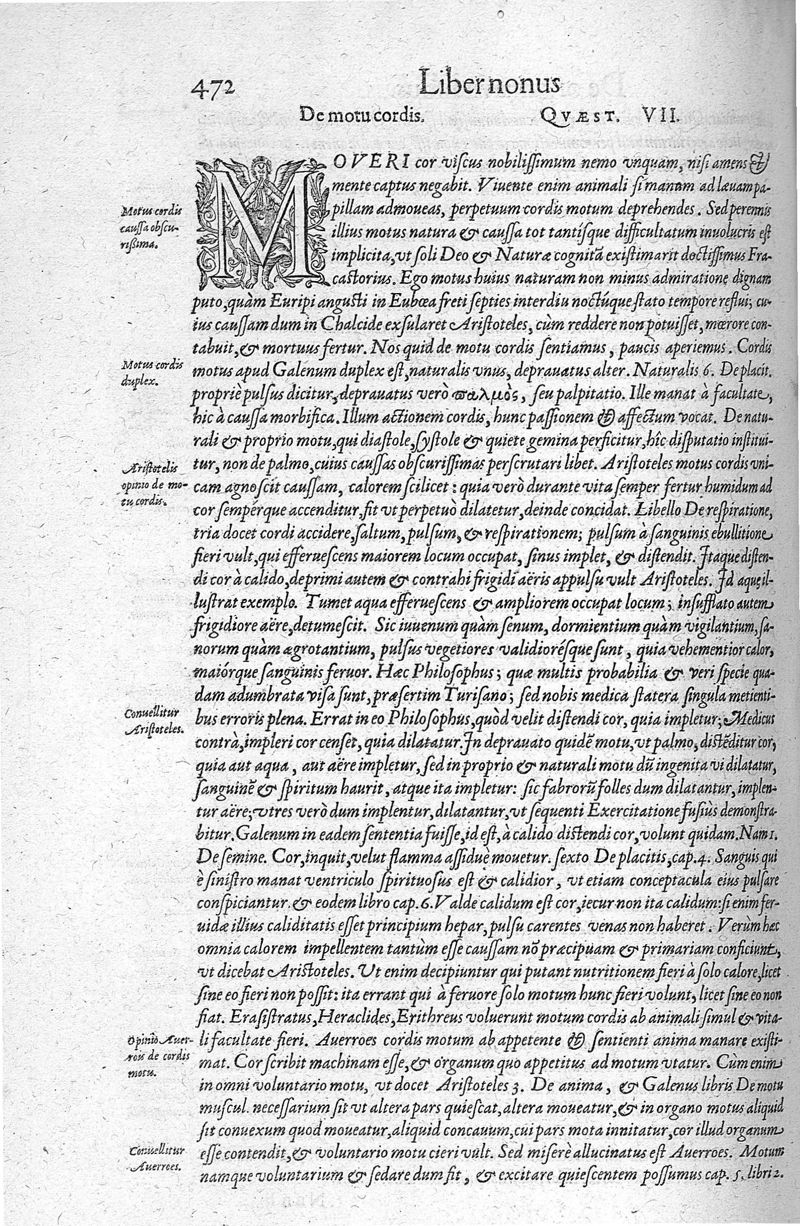 472
Liber nonus
De motu cordis. QVÆST. VII.
MOVERI cor viſcus nobiliſſimum nemo vnquam, niſi amens &
mente captus negabit. Viuente enim animali ſi manum ad læuam pa-
Motus cordis
cauſſa obſcu-
riſſima.
pillam admoueas, perpetuum cordis motum deprehendes. Sed perennis
illius motus natura & cauſſa tot tantiſque difficultatum inuolucris eſt
implicita, vt ſoli Deo & Naturæ cognitā exiſtimarit doctiſſimus Fra-
caſtorius. Ego motus huius naturam non minus admiratione dignam
puto, quàm Euripi anguſti in Eubœa freti ſepties interdiu noctúque ſtato tempore reflui; cu-
ius cauſſam dum in Chalcide exſularet Ariſtoteles, cùm reddere non potuiſſet, mœrore con-
tabuit, & mortuus fertur. Nos quid de motu cordis ſentiamus, paucis aperiemus. Cordis
Motus cordis
duplex.
motus apud Galenum duplex eſt, naturalis vnus, deprauatus alter. Naturalis 6. De placit.
propriè pulſus dicitur, deprauatus verò παλμὸς, ſeu palpitatio. Ille manat à facultate,
hic à cauſſa morbifica. Illum actionem cordis, hunc paſſionem & affectum vocat. De natu-
rali & proprio motu, qui diaſtole, ſyſtole & quiete gemina perficitur, hîc diſputatio inſtitui-
Ariſtotelis
opinio de mo-
tu cordis.
tur, non de palmo, cuius cauſſas obſcuriſſimas perſcrutari libet. Ariſtoteles motus cordis vni-
cam agnoſcit cauſſam, calorem ſcilicet: quia verò durante vita ſemper fertur humidum ad
cor ſempérque accenditur, fit vt perpetuò dilatetur, deinde concidat. Libello De reſpiratione,
tria docet cordi accidere, ſaltum, pulſum, & reſpirationem; pulſum à ſanguinis ebullitione
fieri vult, qui efferueſcens maiorem locum occupat, ſinus implet, & diſtendit. Itaque diſten-
di cor à calido, deprimi autem & contrahi frigidi aëris appulſu vult Ariſtoteles. Id aquę il-
luſtrat exemplo. Tumet aqua efferueſcens & ampliorem occupat locum; inſufflato autem
frigidiore aëre, detumeſcit. Sic iuuenum quàm ſenum, dormientium quàm vigilantium, ſa-
norum quàm ægrotantium, pulſus vegetiores validiorésque ſunt, quia vehementior calor,
maiórque ſanguinis feruor. Hæc Philoſophus; quæ multis probabilia & veri ſpecie qua-
dam adumbrata viſa ſunt, præſertim Turiſano; ſed nobis medica ſtatera ſingula metienti-
Conuellitur
Ariſtoteles.
bus erroris plena. Errat in eo Philoſophus, quòd velit diſtendi cor, quia impletur; Medicus
contrà, impleri cor cenſet, quia dilatatur. In deprauato quidē motu, vt palmo, diſtēditur cor,
quia aut aqua, aut aëre impletur, ſed in proprio & naturali motu dū ingenita vi dilatatur,
ſanguinē & ſpiritum haurit, atque ita impletur: ſic fabrorū folles dum dilatantur, implen-
tur aëre; vtres verò dum implentur, dilatantur, vt ſequenti Exercitatione fuſiùs demonſtra-
bitur. Galenum in eadem ſententia fuiſſe, id eſt, à calido diſtendi cor, volunt quidam. Nam 1.
De ſemine. Cor, inquit, velut flamma aſſiduè mouetur. ſexto De placitis, cap. 4. Sanguis qui
è ſiniſtro manat ventriculo ſpirituoſus eſt & calidior, vt etiam conceptacula eius pulſare
conſpiciantur. & eodem libro cap. 6. Valde calidum eſt cor, iecur non ita calidum: ſi enim fer-
uidæ illius caliditatis eſſet principium hepar, pulſu carentes venas non haberet. Verùm hæc
omnia calorem impellentem tantùm eſſe cauſſam nō præcipuam & primariam conficiunt,
vt dicebat Ariſtoteles. Vt enim decipiuntur qui putant nutritionem fieri à ſolo calore, licet
ſine eo fieri non poſſit: ita errant qui à feruore ſolo motum hunc fieri volunt, licet ſine eo non
fiat. Eraſiſtratus, Heraclides, Erithreus voluerunt motum cordis ab animali ſimul & vita-
Opinio Auer-
rois de cordis
motu.
li facultate fieri. Auerroes cordis motum ab appetente & ſentienti anima manare exiſti-
mat. Cor ſcribit machinam eſſe, & organum quo appetitus ad motum vtatur. Cùm enim
in omni voluntario motu, vt docet Ariſtoteles 3. De anima, & Galenus libris De motu
muſcul. neceſſarium ſit vt altera pars quieſcat, altera moueatur, & in organo motus aliquid
ſit conuexum quod moueatur, aliquid concauum, cui pars mota innitatur, cor illud organum
Conuellitur
Auerroes.
eſſe contendit, & voluntario motu cieri vult. Sed miſerè allucinatus eſt Auerroes. Motum
namque voluntarium & ſedare dum fit, & excitare quieſcentem poſſumus cap. 5. libri 2.